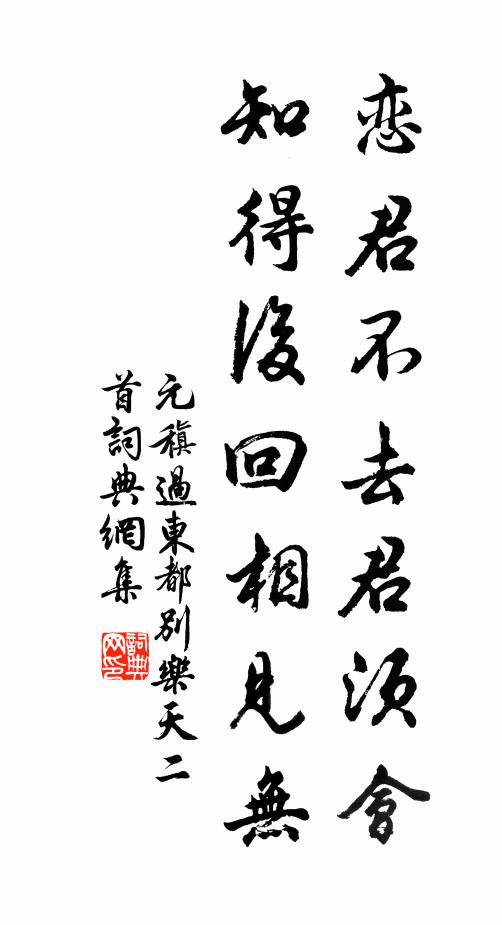 恋君不去君须會
知得後回相見無
元稹過東都別樂天二
首詞典網集
詞典网印